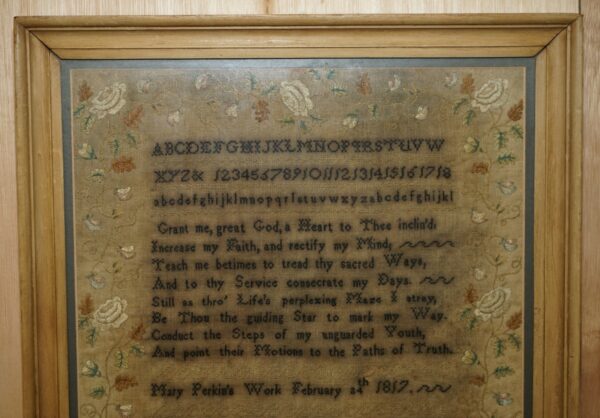 ABCDEFGHIJKLMNOPQRSTUVW
XYZ& 123456789101112131415161718
abcdefghijklmnopqrſstuvwxyzabcdefghijkl
Grant me, great God, a Heart to Thee inclin'd,
Increase my Faith, and rectify my Mind;
Teach me betimes to tread thy sacred Ways,
And to thy Service consecrate my Days.
Still as thro' Life's perplexing Maze I stray,
Be Thou the guiding Star to mark my Way.
Conduct the Steps of my unguarded Youth,
And point their Motions to the Paths of Truth.
Mary Perkin's Work February 24th 1817.